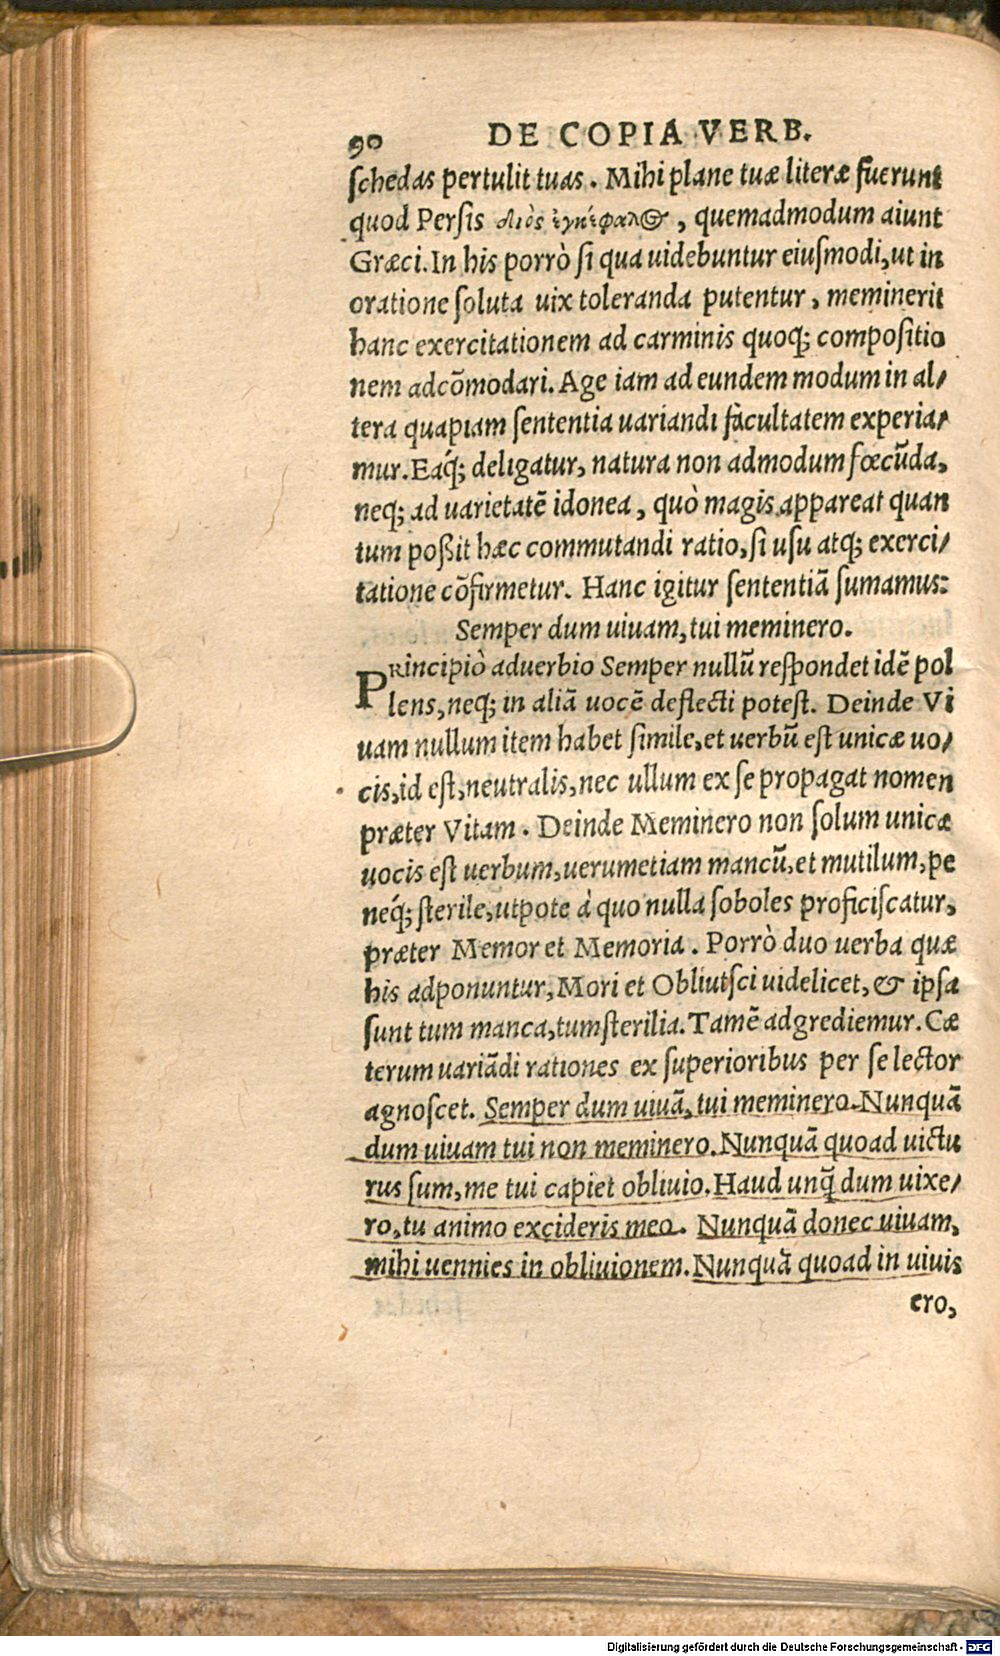 90 DE COPIA VERB.
ſchedas pertulit tuas. Mihi plane tuæ literæ fuerunt
quod Persis διὸς ἐγκέφαλος, quemadmodum aiunt
Græci. In his porrò ſi qua uidebuntur eiuſmodi, ut in
oratione ſoluta uix toleranda putentur, meminerit
hanc exercitationem ad carminis quoq; compoſitio
nem adcõmodari. Age iam ad eundem modum in al/
tera quapiam ſententia uariandi facultatem experia/
mur. Eáq; deligatur, natura non admodum fœcũda,
neq; ad uarietatẽ idonea, quò magis appareat quan
tum poßit hæc commutandi ratio, ſi uſu atq; exerci/
tatione cõfirmetur. Hanc igitur ſententiã ſumamus:
Semper dum uiuam, tui meminero.
PRincipiò aduerbio Semper nullũ reſpondet idẽ pol
lens, neq; in aliã uocẽ deflecti poteſt. Deinde Vi
uam nullum item habet ſimile, et uerbũ eſt unicæ uo/
cis, id eſt, neutralis, nec ullum ex ſe propagat nomen
præter Vitam. Deinde Meminero non ſolum unicæ
uocis eſt uerbum, uerumetiam mancũ, et mutilum, pe
néq; ſterile, utpote à quo nulla ſoboles proficiſcatur,
præter Memor et Memoria. Porrò duo uerba quæ
his adponuntur, Mori et Obliuiſci uidelicet, & ipſa
ſunt tum manca, tum ſterilia. Tamẽ adgrediemur. Cæ
terum uariãdi rationes ex ſuperioribus per ſe lector
agnoſcet. Semper dum uiuã, tui meminero. Nunquã
dum uiuam tui non meminero. Nunquã quoad uictu
rus ſum, me tui capiet obliuio. Haud unq̃ dum uixe/
ro, tu animo excideris meo. Nunquã donec uiuam,
mihi uennies in obliuionem. Nunquã quoad in uiuis
ero,
Digitalisierung gefördert durch die Deutsche Forschungsgemeinschaft - DFG